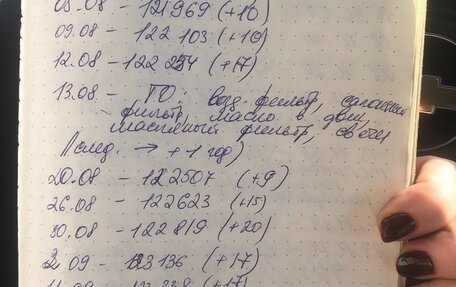 05.08 - 121969 (+10)
09.08 - 122 103 (+10)
12.08 - 122 254 (+17)
13.08 - ТО: возд. фильтр, салонный
фильтр, масло в двиг,
масляный фильтр, свечи
(след. → +1 год)
20.08 - 122507 (+9)
26.08 - 122623 (+15)
30.08 - 122819 (+20)
2.09 - 123136 (+17)
(+17)